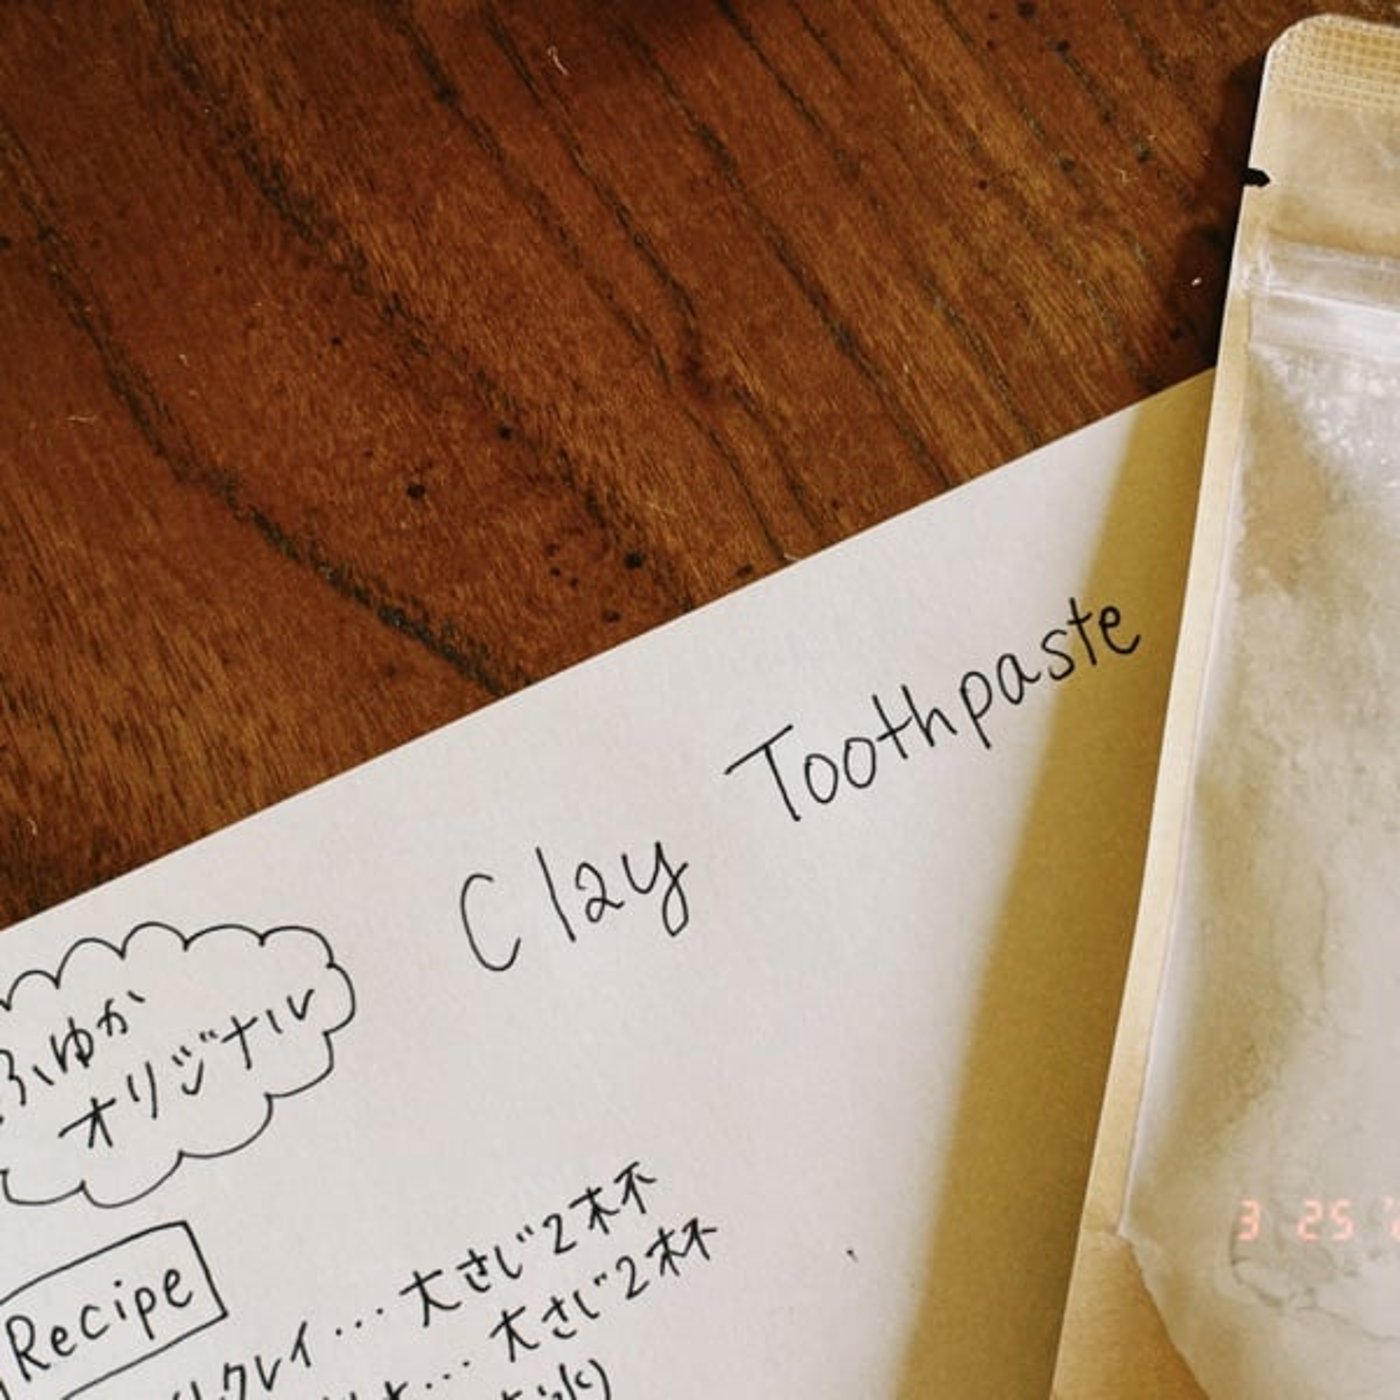 Clay Toothpaste
ふゆか
オリジナル
Recipe
クレイ...大さじ2杯
...大さじ2杯
水)
3 25